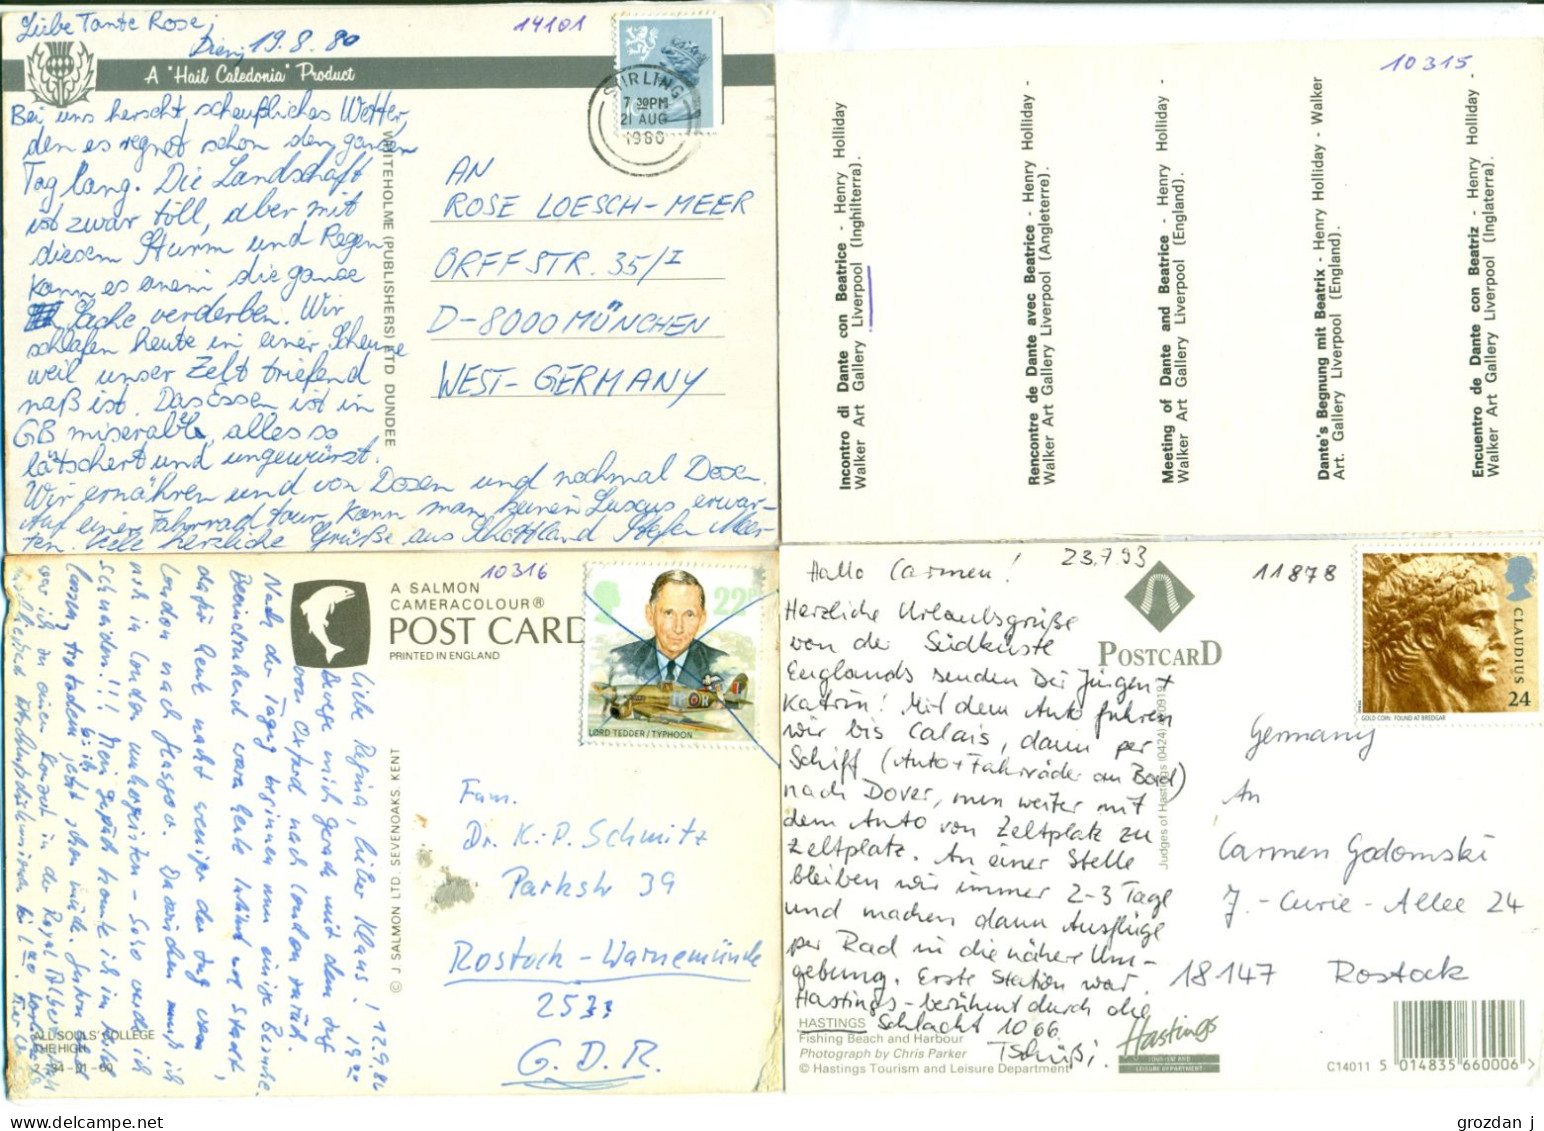 Liebe Tante Rose,
19.8.80
14101
A "Hail Caledonia" Product
STIRLING
7 30PM
21 AUG
1980
Bei uns herscht scheußliches Wetter,
den es regnet schon den ganzen
Tag lang. Die Landschaft
ist zwar toll, aber mit
diesem Sturm und Regen
kann es einem die ganze
Sache verderben. Wir
schlafen heute in einer Scheune
weil unser Zelt triefend
naß ist. Das Essen ist in
GB miserable, alles so
lätschert und ungewürzt.
Wir ernähren und von Dosen und nochmal Dosen.
Auf einer Fahrradtour kann man keinen Luxus erwar-
ten. Viele herzliche Grüße aus Schottland Stefan Meer
WHITEHOLME (PUBLISHERS) LTD DUNDEE
AN
ROSE LOESCH-MEER
ORFFSTR. 35/I
D-8000 MÜNCHEN
WEST-GERMANY
10315
Incontro di Dante con Beatrice - Henry Holliday
Walker Art Gallery Liverpool (Inghilterra).
Rencontre de Dante avec Beatrice - Henry Holliday -
Walker Art Gallery Liverpool (Angleterre).
Meeting of Dante and Beatrice - Henry Holliday -
Walker Art Gallery Liverpool (England).
Dante's Begnung mit Beatrix - Henry Holliday - Walker
Art. Gallery Liverpool (England).
Encuentro de Dante con Beatriz - Henry Holliday -
Walker Art Gallery Liverpool (Inglaterra).
10316
A SALMON
CAMERACOLOUR®
POST CARD
PRINTED IN ENGLAND
22P
LORD TEDDER / TYPHOON
Liebe Regina, lieber Klaus! 12.9.86
Bewege mich gerade mit dem Zug
von Oxford nach London zurück.
Nach der Tagung beginnen nun einige Besuche.
Beeindruckend waren Leute und Stadt,
dafür heute nacht weniger der Zug von
London nach Glasgow. Dazwischen muß ich
noch in London
© J SALMON LTD. SEVENOAKS. KENT
ALL SOULS' COLLEGE
THE HIGH
2-34-01-60
Fam.
Dr. K.-P. Schmitz
Parkstr 39
Rostock-Warnemünde
2533
G.D.R.
Hallo Carmen!
23.7.93
11878
Herzliche Urlaubsgrüße
von der Südküste
Englands senden Dir Jürgen +
Katrin! Mit dem Auto fuhren
wir bis Calais, dann per
Schiff (Auto + Fahrräder an Bord)
nach Dover, nun weiter mit
dem Auto von Zeltplatz zu
Zeltplatz. An einer Stelle
bleiben wir immer 2-3 Tage
und machen dann Ausflüge
per Rad in die nähere Um-
gebung. Erste Station war
Hastings - berühmt durch die
Schlacht 1066.
Tschüßi
HASTINGS
Fishing Beach and Harbour
Photograph by Chris Parker
© Hastings Tourism and Leisure Department
POSTCARD
Judges of Hastings (0424)
Hastings
TOURISM AND
LEISURE DEPARTMENT
CLAUDIUS
24
GOLD COIN: FOUND AT BREDGAR
Germany
An
Carmen Godomski
J.-Curie-Allee 24
18147 Rostock
C14011 5 014835 660006 >
grozdan j